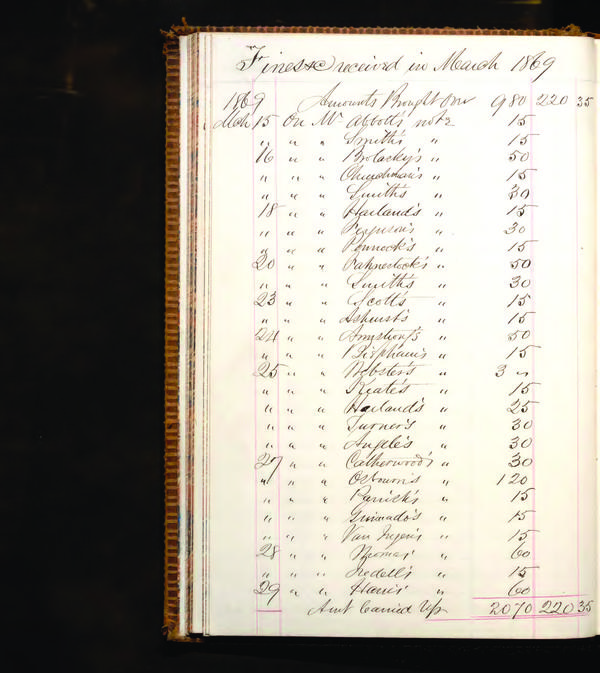 Fines &c received in March 1869
1869 Amounts Brought Over 980 220 35
Mch 15 On Mr Abbott's note 15
" " " Smith's " 15
16 " " Brolasky's " 50
" " " Churchman's " 15
" " " Smith's " 30
18 " " Harland's " 15
" " " Ferguson's " 30
" " " Pennock's " 15
20 " " Fahnestock's " 50
" " " Smith's " 30
23 " " Scott's " 15
" " " Ashurst's " 15
24 " " Armstrong's " 50
" " " Bispham's " 15
25 " " Webster's " 3 "
" " " Keate's " 15
" " " Harland's " 25
" " " Turner's " 30
" " " Angele's " 30
27 " " Catherwood's " 30
" " " Osbourn's " 120
" " " Parrish's " 15
" " " " 15
" " " Van Ingen's " 15
28 " " Thomas' " 60
" " " Iredell's " 15
29 " " Harris' " 60
Amt Carried Up 2070 220 35